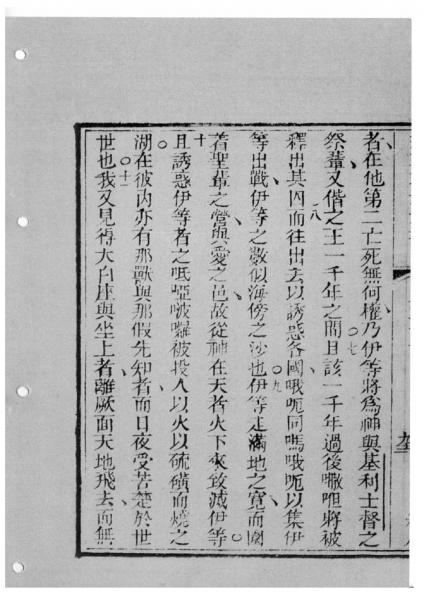 者在他第二亡死無何權乃伊等將為神與基利士督之
祭輩又偕之王一千年之間七且該一千年過後㘔呾將被
釋出其囚八而往出去以誘惑各國哦呃同嗎哦呃以集伊
等出戰伊等之數似海傍之沙也九伊等走滿地之寬而圍
着聖輩之營與愛之邑故從神在天者火下來致滅伊等
十且誘惑伊等者之呧啞囉被投入以火以硫磺而燒之
湖在彼內亦有那獸與那假先知者而日夜受苦楚於世
世也十一我又見得大白座與坐上者離厥面天地飛去而無